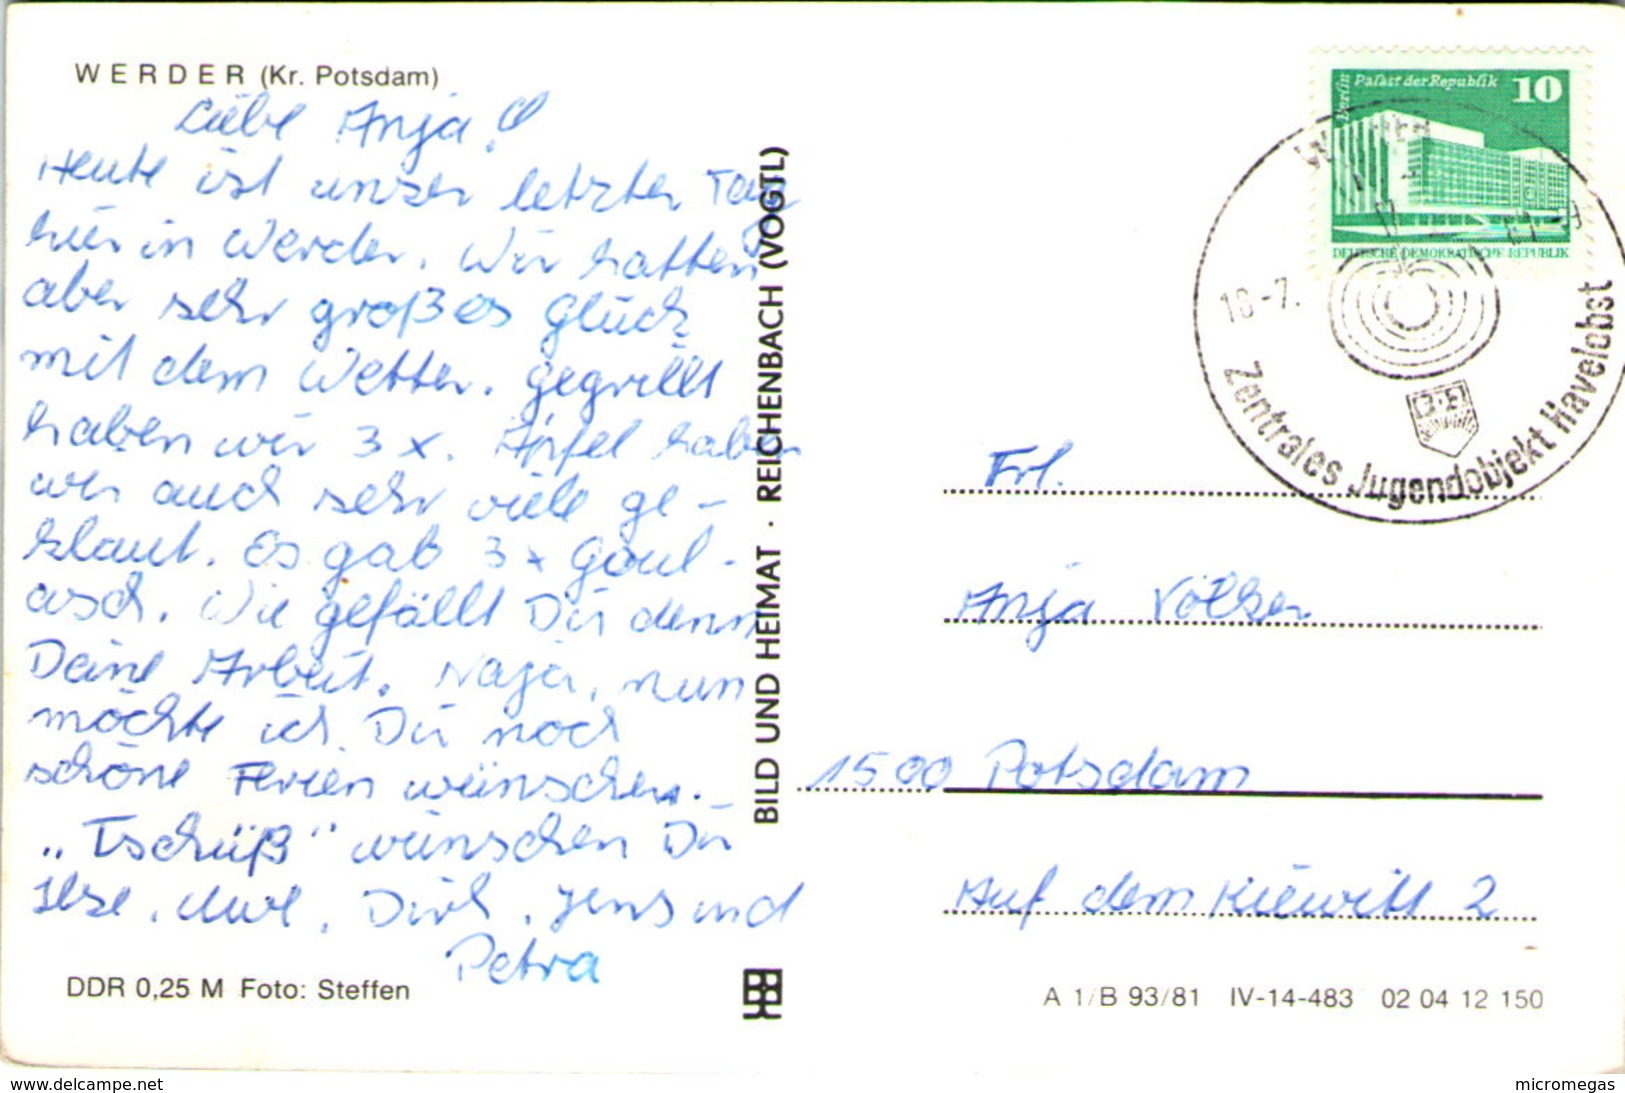 WERDER (Kr. Potsdam)
Liebe Anja!
Heute ist unser letzter Tag
hier in Werder. Wir hatten
aber sehr großes Glück
mit dem Wetter. gegrillt
haben wir 3 x. Äpfel haben
wir auch sehr viele ge-
klaut. Es gab 3 x Goul-
asch. Wie gefällt Dir denn
Deine Arbeit. Naja, nun
möchte ich Dir noch
schöne Ferien wünschen.
„Tschüß" wünschen Dir
Ilse, Uwe, Dirk, Jens und
Petra
DDR 0,25 M Foto: Steffen
BILD UND HEIMAT · REICHENBACH (VOGTL)
Berlin
Palast der Republik
10
DEUTSCHE DEMOKRATISCHE REPUBLIK
Zentrales Jugendobjekt Havelobst
Frl.
Anja Völker
1500 Potsdam
Auf dem Kiewitt 2
A 1/B 93/81 IV-14-483 02 04 12 150
www.delcampe.net
micromegas